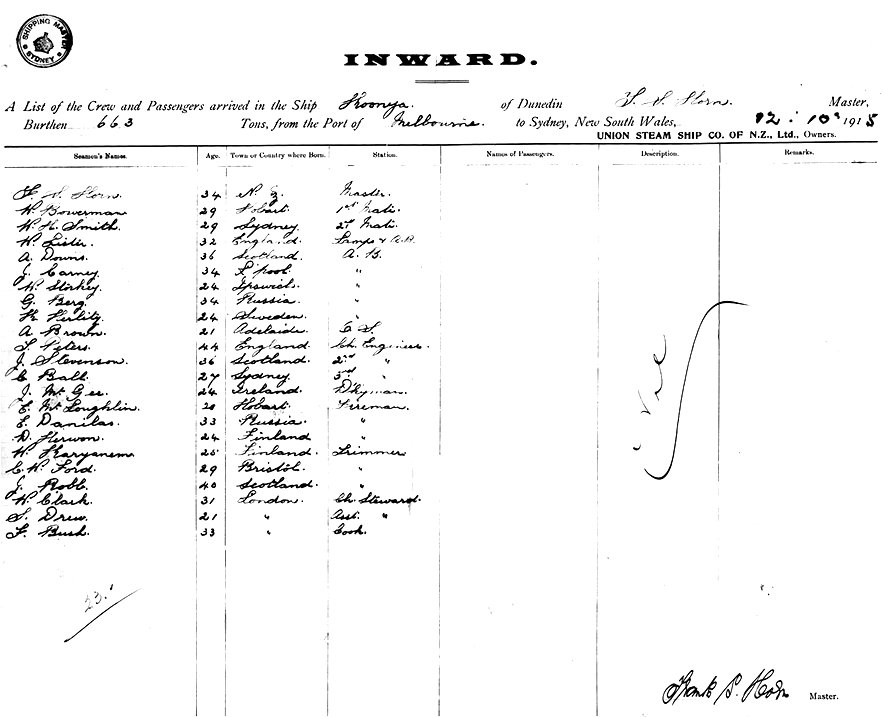 SHIPPING MASTER SYDNEY
INWARD.
A List of the Crew and Passengers arrived in the Ship Kooneya. of Dunedin F. S. Horn. Master,
Burthen 663 Tons, from the Port of Melbourne. to Sydney, New South Wales, 12. 10 1915
UNION STEAM SHIP CO. OF N.Z., Ltd., Owners.
Seamen's Names. Age. Town or Country where Born. Station. Names of Passengers. Description. Remarks.
F. S. Horn. 34 N. Z. Master.
W. Bowerman 29 Hobart. 1st Mate.
W. H. Smith. 29 Sydney. 2nd Mate.
W. Lister. 32 England. Lamps & A.B.
A. Downs. 36 Scotland. A. B.
J. Carney. 34 L'pool. "
W. Storkey. 24 Ipswich. "
G. Berg. 34 Russia. "
24 Sweden. "
A. Brown. 21 Adelaide. O. S.
Peters. 44 England. Ch. Engineer.
J. Stevenson. 36 Scotland. 2nd "
C. Ball. 27 Sydney. 3rd "
J. McGee. 24 Ireland. Dkyman.
E. McLoughlin. 20 Hobart. Fireman.
E. Danilas. 33 Russia. "
D. 24 Finland "
W. 25 Finland. Trimmer
C. W. Ford. 29 Bristol. "
J. Robb. 40 Scotland. "
W. Clark. 31 London. Ch. Steward.
S. Drew. 21 " Asst. "
F. Bush. 33 " Cook.
Nil
23.
Frank S. Horn Master.